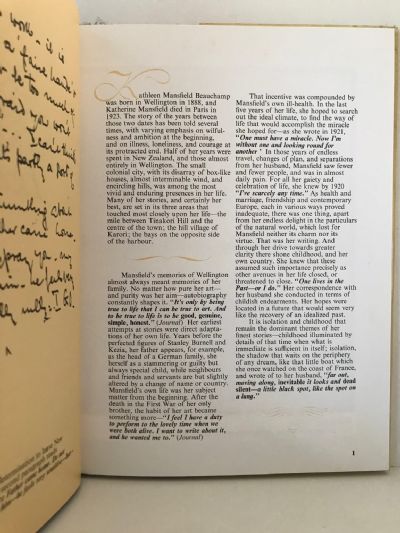 Kathleen Mansfield Beauchamp
was born in Wellington in 1888, and
Katherine Mansfield died in Paris in
1923. The story of the years between
those two dates has been told several
times, with varying emphasis on wilful-
ness and ambition at the beginning,
and on illness, loneliness, and courage at
its protracted end. Half of her years were
spent in New Zealand, and those almost
entirely in Wellington. The small
colonial city, with its disarray of box-like
houses, almost interminable wind, and
encircling hills, was among the most
vivid and enduring presences in her life.
Many of her stories, and certainly her
best, are set in its three areas that
touched most closely upon her life—the
mile between Tinakori Hill and the
centre of town; the hill village of
Karori; the bays on the opposite side
of the harbour.
Mansfield's memories of Wellington
almost always meant memories of her
family. No matter how pure her art—
and purity was her aim—autobiography
constantly shapes it. "It's only by being
true to life that I can be true to art. And
to be true to life is to be good, genuine,
simple, honest." (Journal) Her earliest
attempts at stories were direct adapta-
tions of her own life. Years before the
perfected figures of Stanley Burnell and
Kezia, her father appears, for example,
as the head of a German family, while
she herself is a stammering and guilty but
always special child, while neighbours
and friends and servants are but slightly
altered by a change of name or country.
Mansfield's own life was her subject
matter from the beginning. After the
death in the First War of her only
brother, the habit of her art became
something more—"I feel I have a duty
to perform to the lovely time when we
were both alive. I want to write about it,
and he wanted me to." (Journal)
That incentive was compounded by
Mansfield's own ill-health. In the last
five years of her life, she hoped to search
out the ideal climate, to find the way of
life that would accomplish the miracle
she hoped for—as she wrote in 1921,
"One must have a miracle. Now I'm
without one and looking round for
another" In those years of endless
travel, changes of plan, and separations
from her husband, Mansfield saw fewer
and fewer people, and was in almost
daily pain. For all her gaiety and
celebration of life, she knew by 1920
"I'm scarcely any time." As health and
marriage, friendship and contemporary
Europe, each in various ways proved
inadequate, there was one thing, apart
from her endless delight in the particulars
of the natural world, which lost for
Mansfield neither its charm nor its
virtue. That was her writing. And
through her drive towards greater
clarity there shone childhood, and her
own country. She knew that these
assumed such importance precisely as
other avenues in her life closed, or
threatened to close. "One lives in the
Past—or I do." Her correspondence with
her husband she conducted in terms of
childish endearments. Her hopes were
located in a future that would seem very
like the recovery of an idealized past.
It is isolation and childhood that
remain the dominant themes of her
finest stories—childhood illuminated by
details of that time when what is
immediate is sufficient in itself; isolation,
the shadow that waits on the periphery
of any dream, like that little boat which
she once watched on the coast of France,
and wrote of to her husband, "far out,
moving along, inevitable it looks and dead
silent—a little black spot, like the spot on
a lung."
1